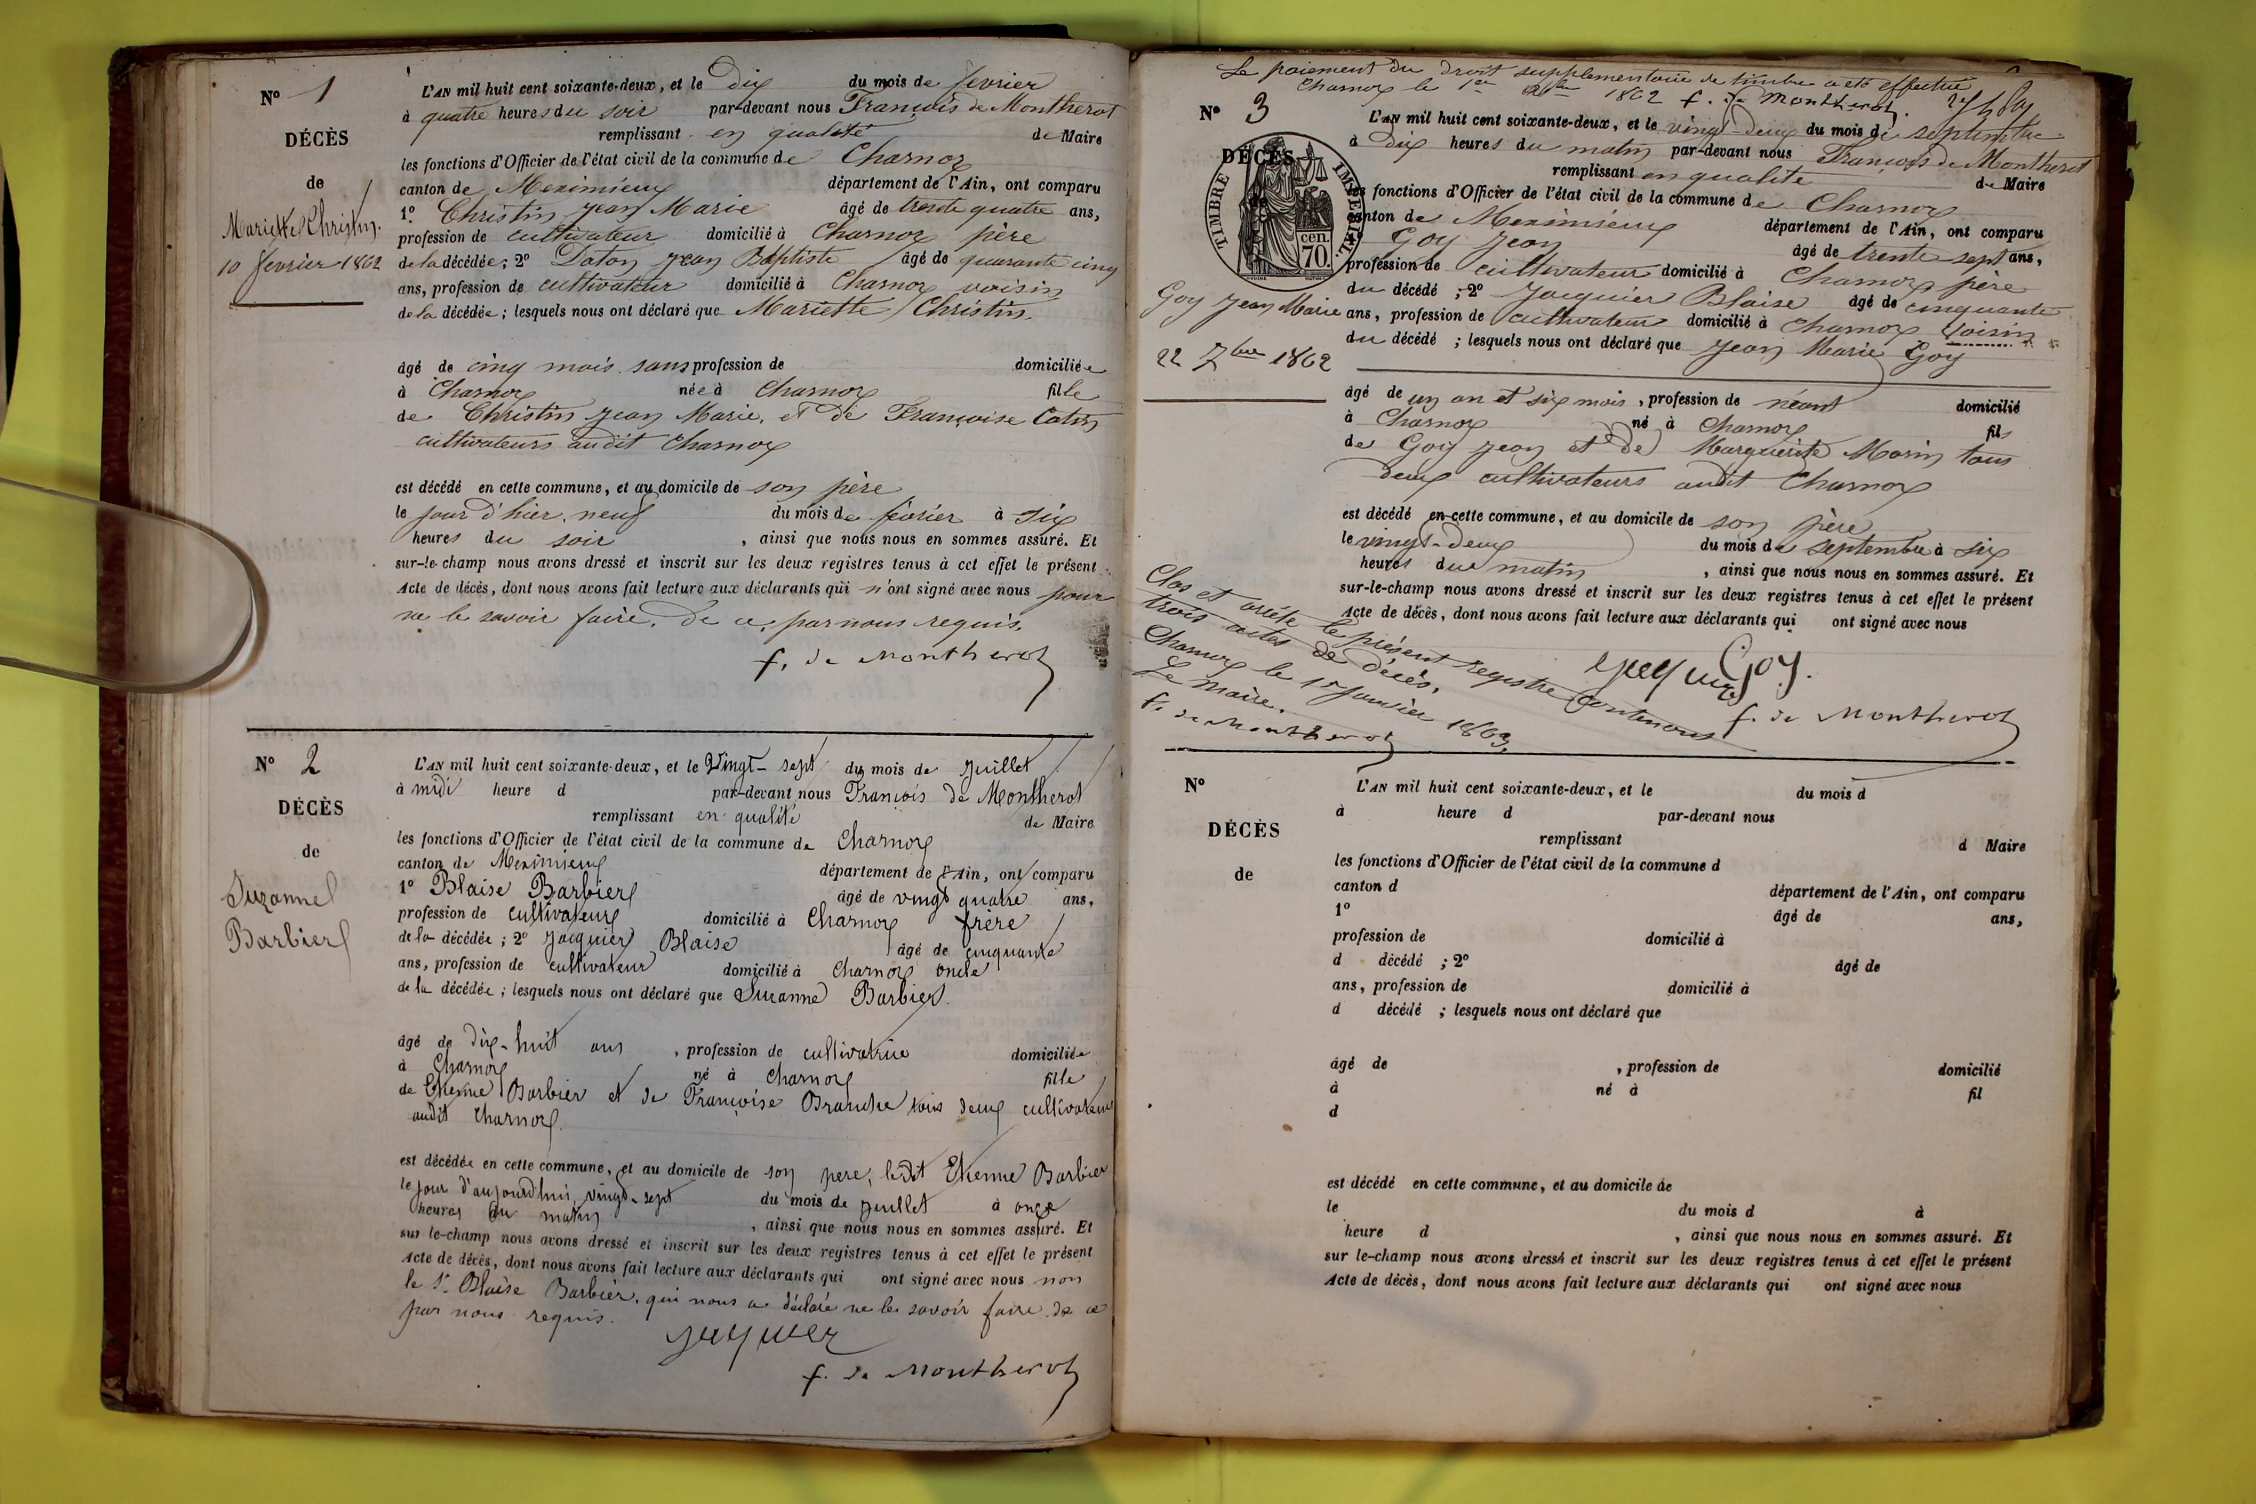 N° 1
DÉCÈS
de
Mariette Christin.
10 février 1862
L'AN mil huit cent soixante-deux, et le Dix du mois de février
à quatre heures du soir par-devant nous François de Montherot
remplissant en qualité de Maire
les fonctions d'Officier de l'état civil de la commune de Charnoz
canton de Meximieux département de l'Ain, ont comparu
1° Christin Jean Marie âgé de trente quatre ans,
profession de cultivateur domicilié à Charnoz père
de la décédée; 2° Jean Baptiste âgé de quarante cinq
ans, profession de cultivateur domicilié à Charnoz voisin
de la décédée; lesquels nous ont déclaré que Mariette Christin.
âgé de cinq mois sans profession de domiciliée
à Charnoz née à Charnoz fille
de Christin Jean Marie, et de Françoise
cultivateurs audit Charnoz
est décédé en cette commune, et au domicile de son père
le jour d'hier, neuf du mois de février à six
heures du soir, ainsi que nous nous en sommes assuré. Et
sur-le-champ nous avons dressé et inscrit sur les deux registres tenus à cet effet le présent
Acte de décès, dont nous avons fait lecture aux déclarants qui n'ont signé avec nous pour
ne le savoir faire, de ce, par nous requis.
f. de Montherot
N° 2
DÉCÈS
de
Suzanne
Barbier
L'AN mil huit cent soixante-deux, et le Vingt-sept du mois de Juillet
à midi heure d par-devant nous François de Montherot
remplissant en qualité de Maire
les fonctions d'Officier de l'état civil de la commune de Charnoz
canton de Meximieux département de l'Ain, ont comparu
1° Blaise Barbier âgé de vingt quatre ans,
profession de cultivateur domicilié à Charnoz frère
de la décédée; 2° Jacquier Blaise âgé de cinquante
ans, profession de cultivateur domicilié à Charnoz oncle
de la décédée; lesquels nous ont déclaré que Suzanne Barbier.
âgé de dix-huit ans, profession de cultivatrice domiciliée
à Charnoz né à Charnoz fille
de Etienne Barbier et de Françoise Branche tous deux cultivateurs
audit Charnoz.
est décédée en cette commune, et au domicile de son père, ledit Etienne Barbier
le jour d'aujourd'hui vingt-sept du mois de juillet à onze
heures du matin, ainsi que nous nous en sommes assuré. Et
sur le-champ nous avons dressé et inscrit sur les deux registres tenus à cet effet le présent
Acte de décès, dont nous avons fait lecture aux déclarants qui ont signé avec nous non
le Sr Blaise Barbier, qui nous a déclaré ne le savoir faire de ce
par nous requis.
Jacquier
f. de Montherot
Le paiement du droit supplémentaire de timbre a été effectué
Charnoz le 1er 1862 f. de Montherot.
N° 3
DÉCÈS
de
TIMBRE IMPÉRIAL.
70 cen.
Goy Jean Marie
22 7bre 1862
L'AN mil huit cent soixante-deux, et le vingt-deux du mois de septembre
à Dix heures du matin par-devant nous François de Montherot
remplissant en qualité de Maire
les fonctions d'Officier de l'état civil de la commune de Charnoz
canton de Meximieux département de l'Ain, ont comparu
Goy Jean âgé de trente sept ans,
profession de cultivateur domicilié à Charnoz père
du décédé; 2° Jacquier Blaise âgé de cinquante
ans, profession de cultivateur domicilié à Charnoz voisin
du décédé; lesquels nous ont déclaré que Jean Marie Goy
âgé de un an et six mois, profession de néant domicilié
à Charnoz né à Charnoz fils
de Goy Jean et de Marguerite Morin tous
deux cultivateurs audit Charnoz
est décédé en cette commune, et au domicile de son père
le vingt-deux du mois de septembre à six
heures du matin, ainsi que nous nous en sommes assuré. Et
sur-le-champ nous avons dressé et inscrit sur les deux registres tenus à cet effet le présent
Acte de décès, dont nous avons fait lecture aux déclarants qui ont signé avec nous
Jacquier Goy.
f. de Montherot
Clos et arrêté le présent registre contenant
trois actes de décès.
Charnoz le 1er Janvier 1863.
Le Maire.
f. de Montherot
N°
DÉCÈS
de
L'AN mil huit cent soixante-deux, et le du mois d
à heure d par-devant nous
remplissant d Maire
les fonctions d'Officier de l'état civil de la commune d
canton d département de l'Ain, ont comparu
1° âgé de ans,
profession de domicilié à
d décédé; 2° âgé de
ans, profession de domicilié à
d décédé; lesquels nous ont déclaré que
âgé de, profession de domicilié
à né à fil
d
est décédé en cette commune, et au domicile de
le du mois d à
heure d, ainsi que nous nous en sommes assuré. Et
sur le-champ nous avons dressé et inscrit sur les deux registres tenus à cet effet le présent
Acte de décès, dont nous avons fait lecture aux déclarants qui ont signé avec nous